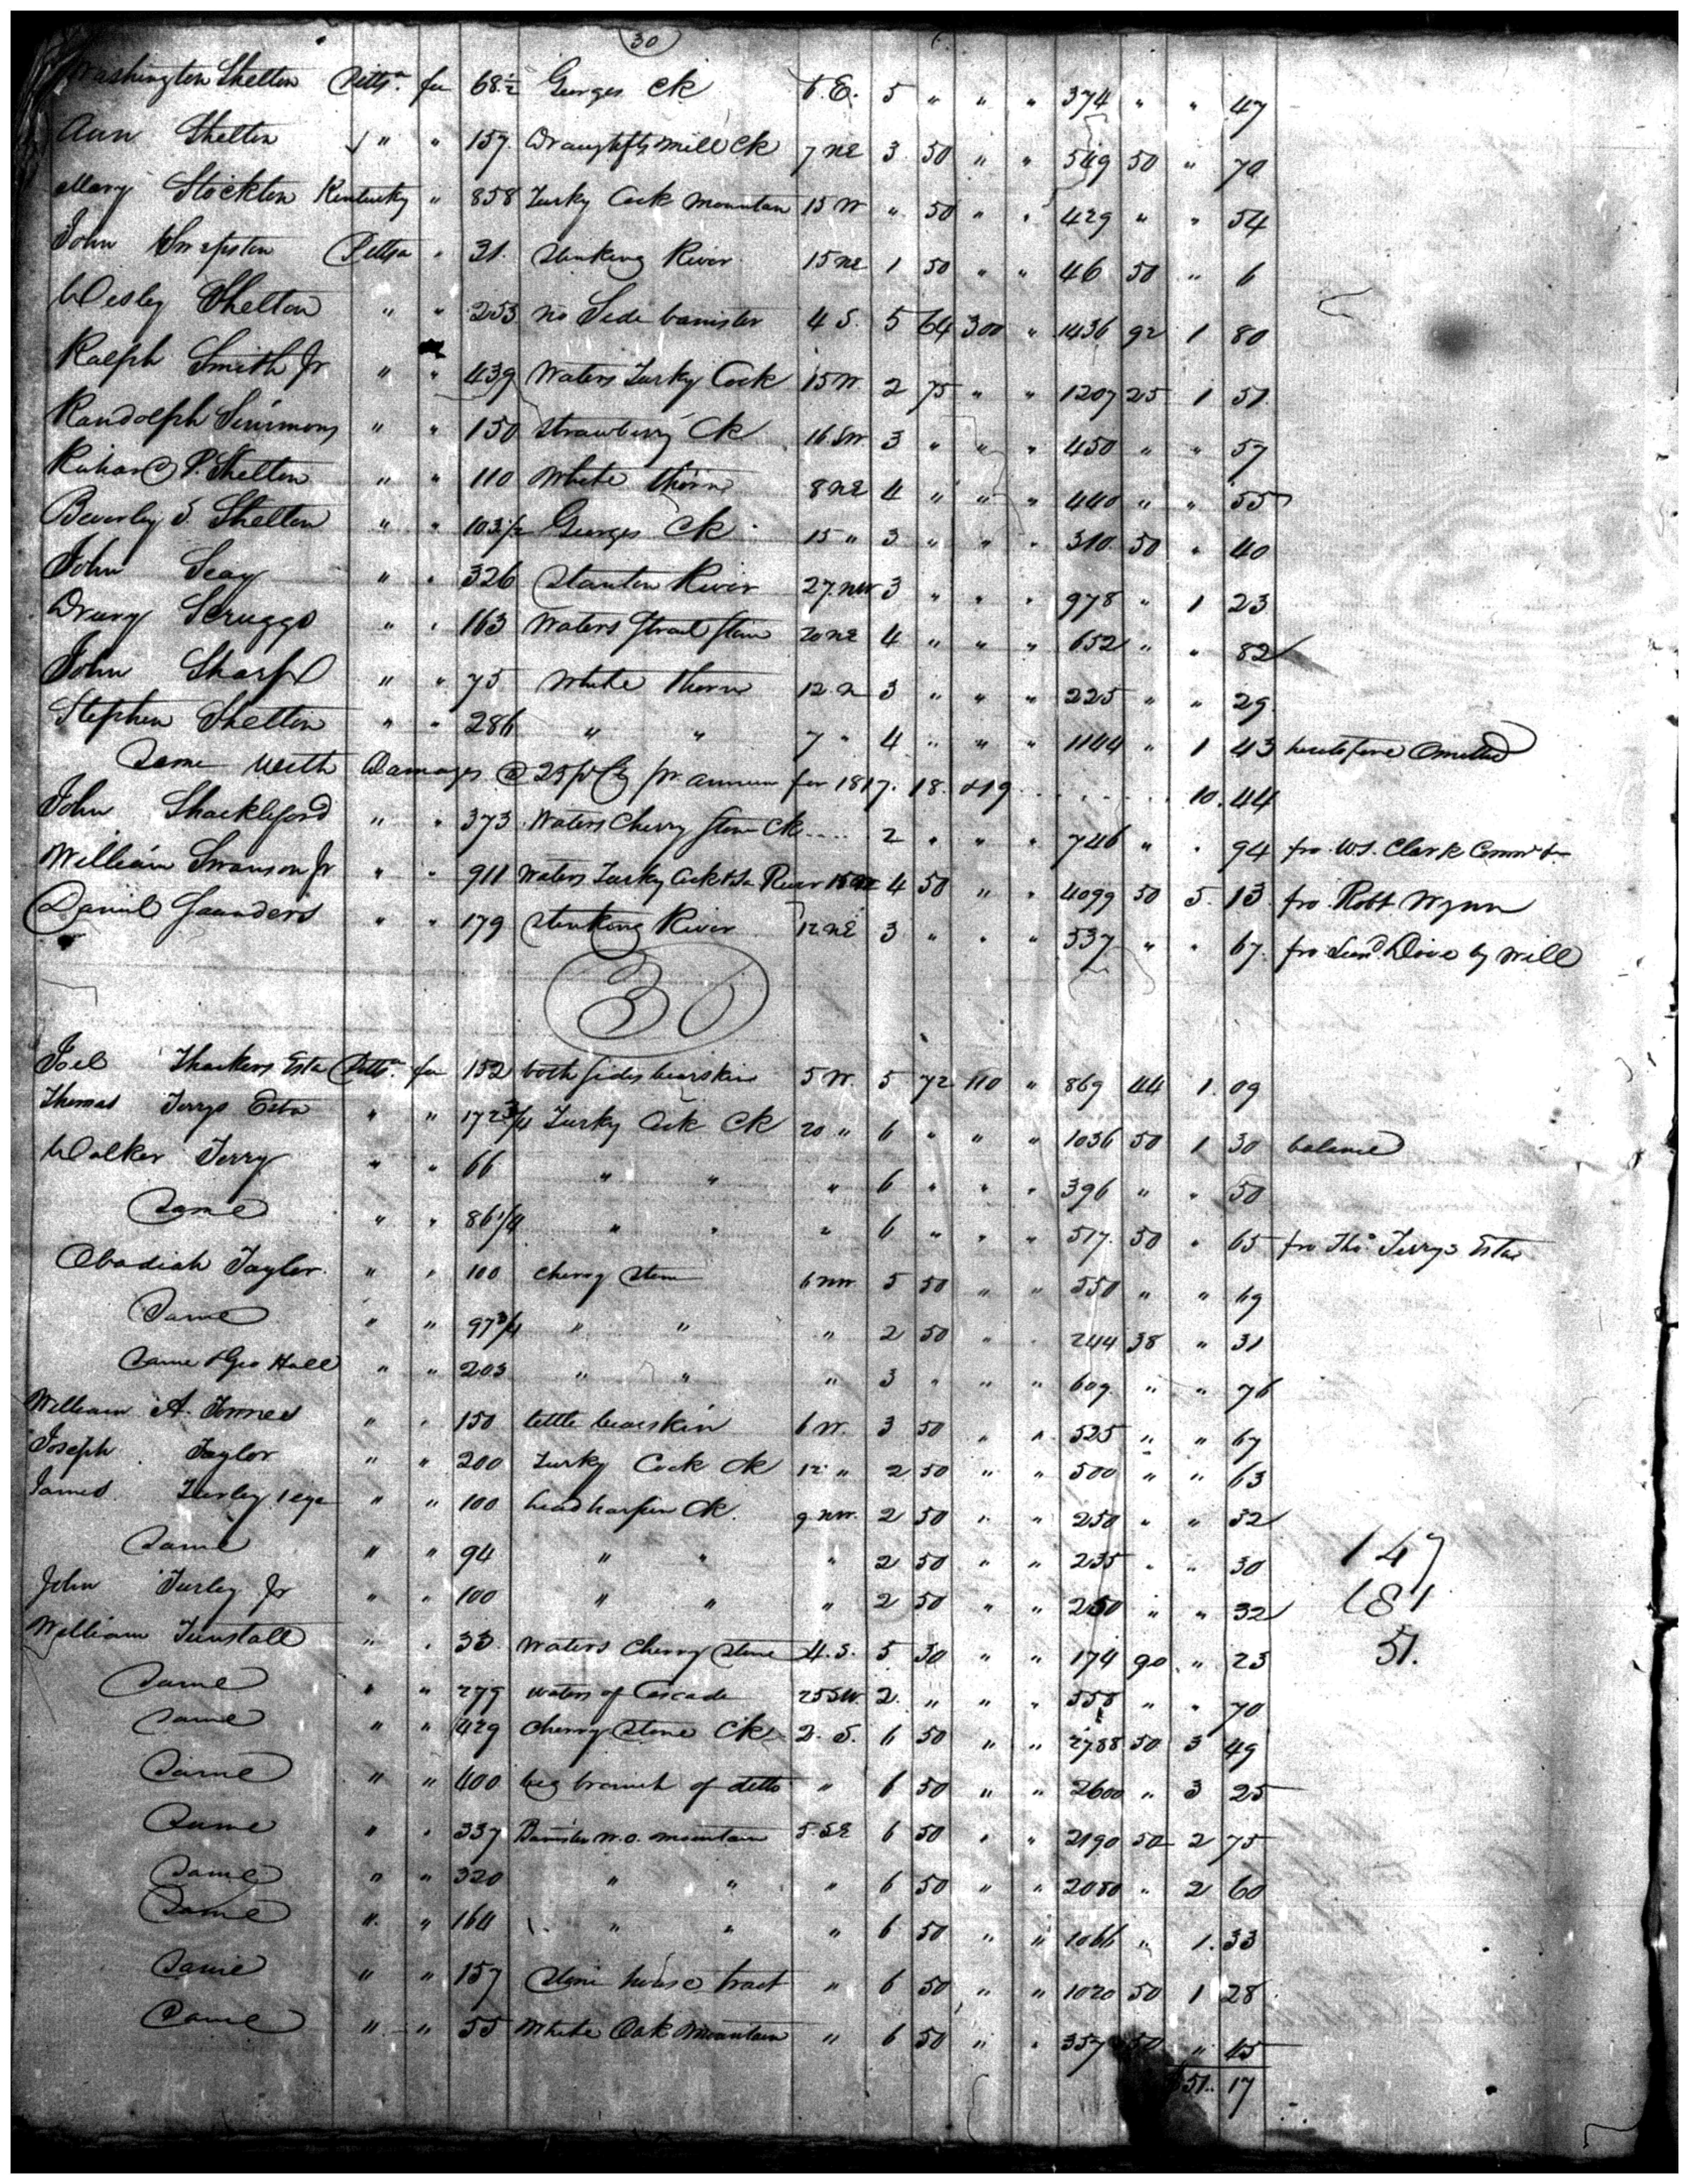 30
Washington Shelton Pittsa. fee 68½ Georges Ck 6. E. 5 " " " 374 " " 47
Ann Shelton " " 157 Mill Ck 7 NE 3 50 " " 549 50 " 70
Mary Stockton Kentucky " 858 Turky Cock Mountan 15 W " 50 " " 429 " " 54
John Pittsa " 31 Stinking River 15 NE 1 50 " " 46 50 " 6
Wesley Shelton " " 253 No Side banister 4 S. 5 64 300 " 1436 92 1 80
Ralph Smith Jr " " 439 Waters Turky Cock 15 W. 2 75 " " 1207 25 1 51
Randolph Simmons " " 150 Strawberry Ck 16 SW 3 " " " 450 " " 57
Richard P. Shelton " " 110 White thorn 8 NE 4 " " " 440 " " 55
Beverley S. Shelton " " 103½ Georges Ck 15 " 3 " " " 310 50 " 40
John Seay " " 326 Stanton River 27 NW 3 " " " 978 " 1 23
Drury Scruggs " " 163 Waters Strait Stone 20 NE 4 " " " 652 " " 82
John Sharp " " 75 White thorn 12 N 3 " " " 225 " " 29
Stephen Shelton " " 286 " " 7 " 4 " " " 1144 " 1 43 heretofore Omitted
Same with Damages @ 25 pr Ct pr. annum for 1817. 18. & 19 10.44
John Shackleford " " 373 Waters Cherry Stone Ck .... 2 " " " 746 " " 94 fro. W. S. Clark Commr &c
William Swanson Jr " " 911 Waters Turky Cock & River 4 50 " " 4099 50 5. 13 fro. Robt Wynn
Daniel Saunders " " 179 Stinking River 12 NE 3 " " " 537 " " 67. fro Dove by Will
30
Joel Thackers Esta Pittsa. fee 152 both sides bearskin 5 W. 5 72 110 " 869 44 1. 09
Thomas Terrys Esta " " 172¾ Turky Cock Ck 20 " 6 " " " 1036 50 1 30 balance
Walker Terry " " 66 " " " 6 " " " 396 " " 50
Same " " 86¼ " " " 6 " " " 517. 50 " 65 fro Tho. Terrys Esta
Obadiah Taylor " " 100 Cherry Stone 6 NW 5 50 " " 550 " " 69
Same " " 97¾ " " " 2 50 " " 244 38 " 31
Same & Geo Hall " " 203 " " " 3 " " " 609 " " 76
William A. " " 150 little bearskin 6 W. 3 50 " " 525 " " 67
Joseph Taylor " " 200 Turky Cock Ck 12 " 2 50 " " 500 " " 63
James Turley " " 100 head harpin Ck. 9 NW. 2 50 " " 250 " " 32
Same " " 94 " " " 2 50 " " 235 " " 30
147
John Turley Jr " " 100 " " " 2 50 " " 250 " " 32
181
William Tunstall " " 33 Waters Cherry Stone 4. S. 5 30 " " 174 90 " 23
51.
Same " " 279 Waters of Cascade 25 SW. 2. " " " 558 " " 70
Same " " 429 Cherry Stone Ck 2. S. 6 50 " " 2788 50 3 49
Same " " 400 big branch of ditto " 6 50 " " 2600 " 3 25
Same " " 337 Banister W. O. Mountain 5. SE 6 50 " " 2190 50 2 75
Same " " 320 " " " 6 50 " " 2080 " 2 60
Same " " 164 " " " 6 50 " " 1066 " 1. 33
Same " " 157 Stone house tract " 6 50 " " 1020 50 1 28
Same " " 55 White Oak Mountain " 6 50 " " 357 50 " 45
51.. 17